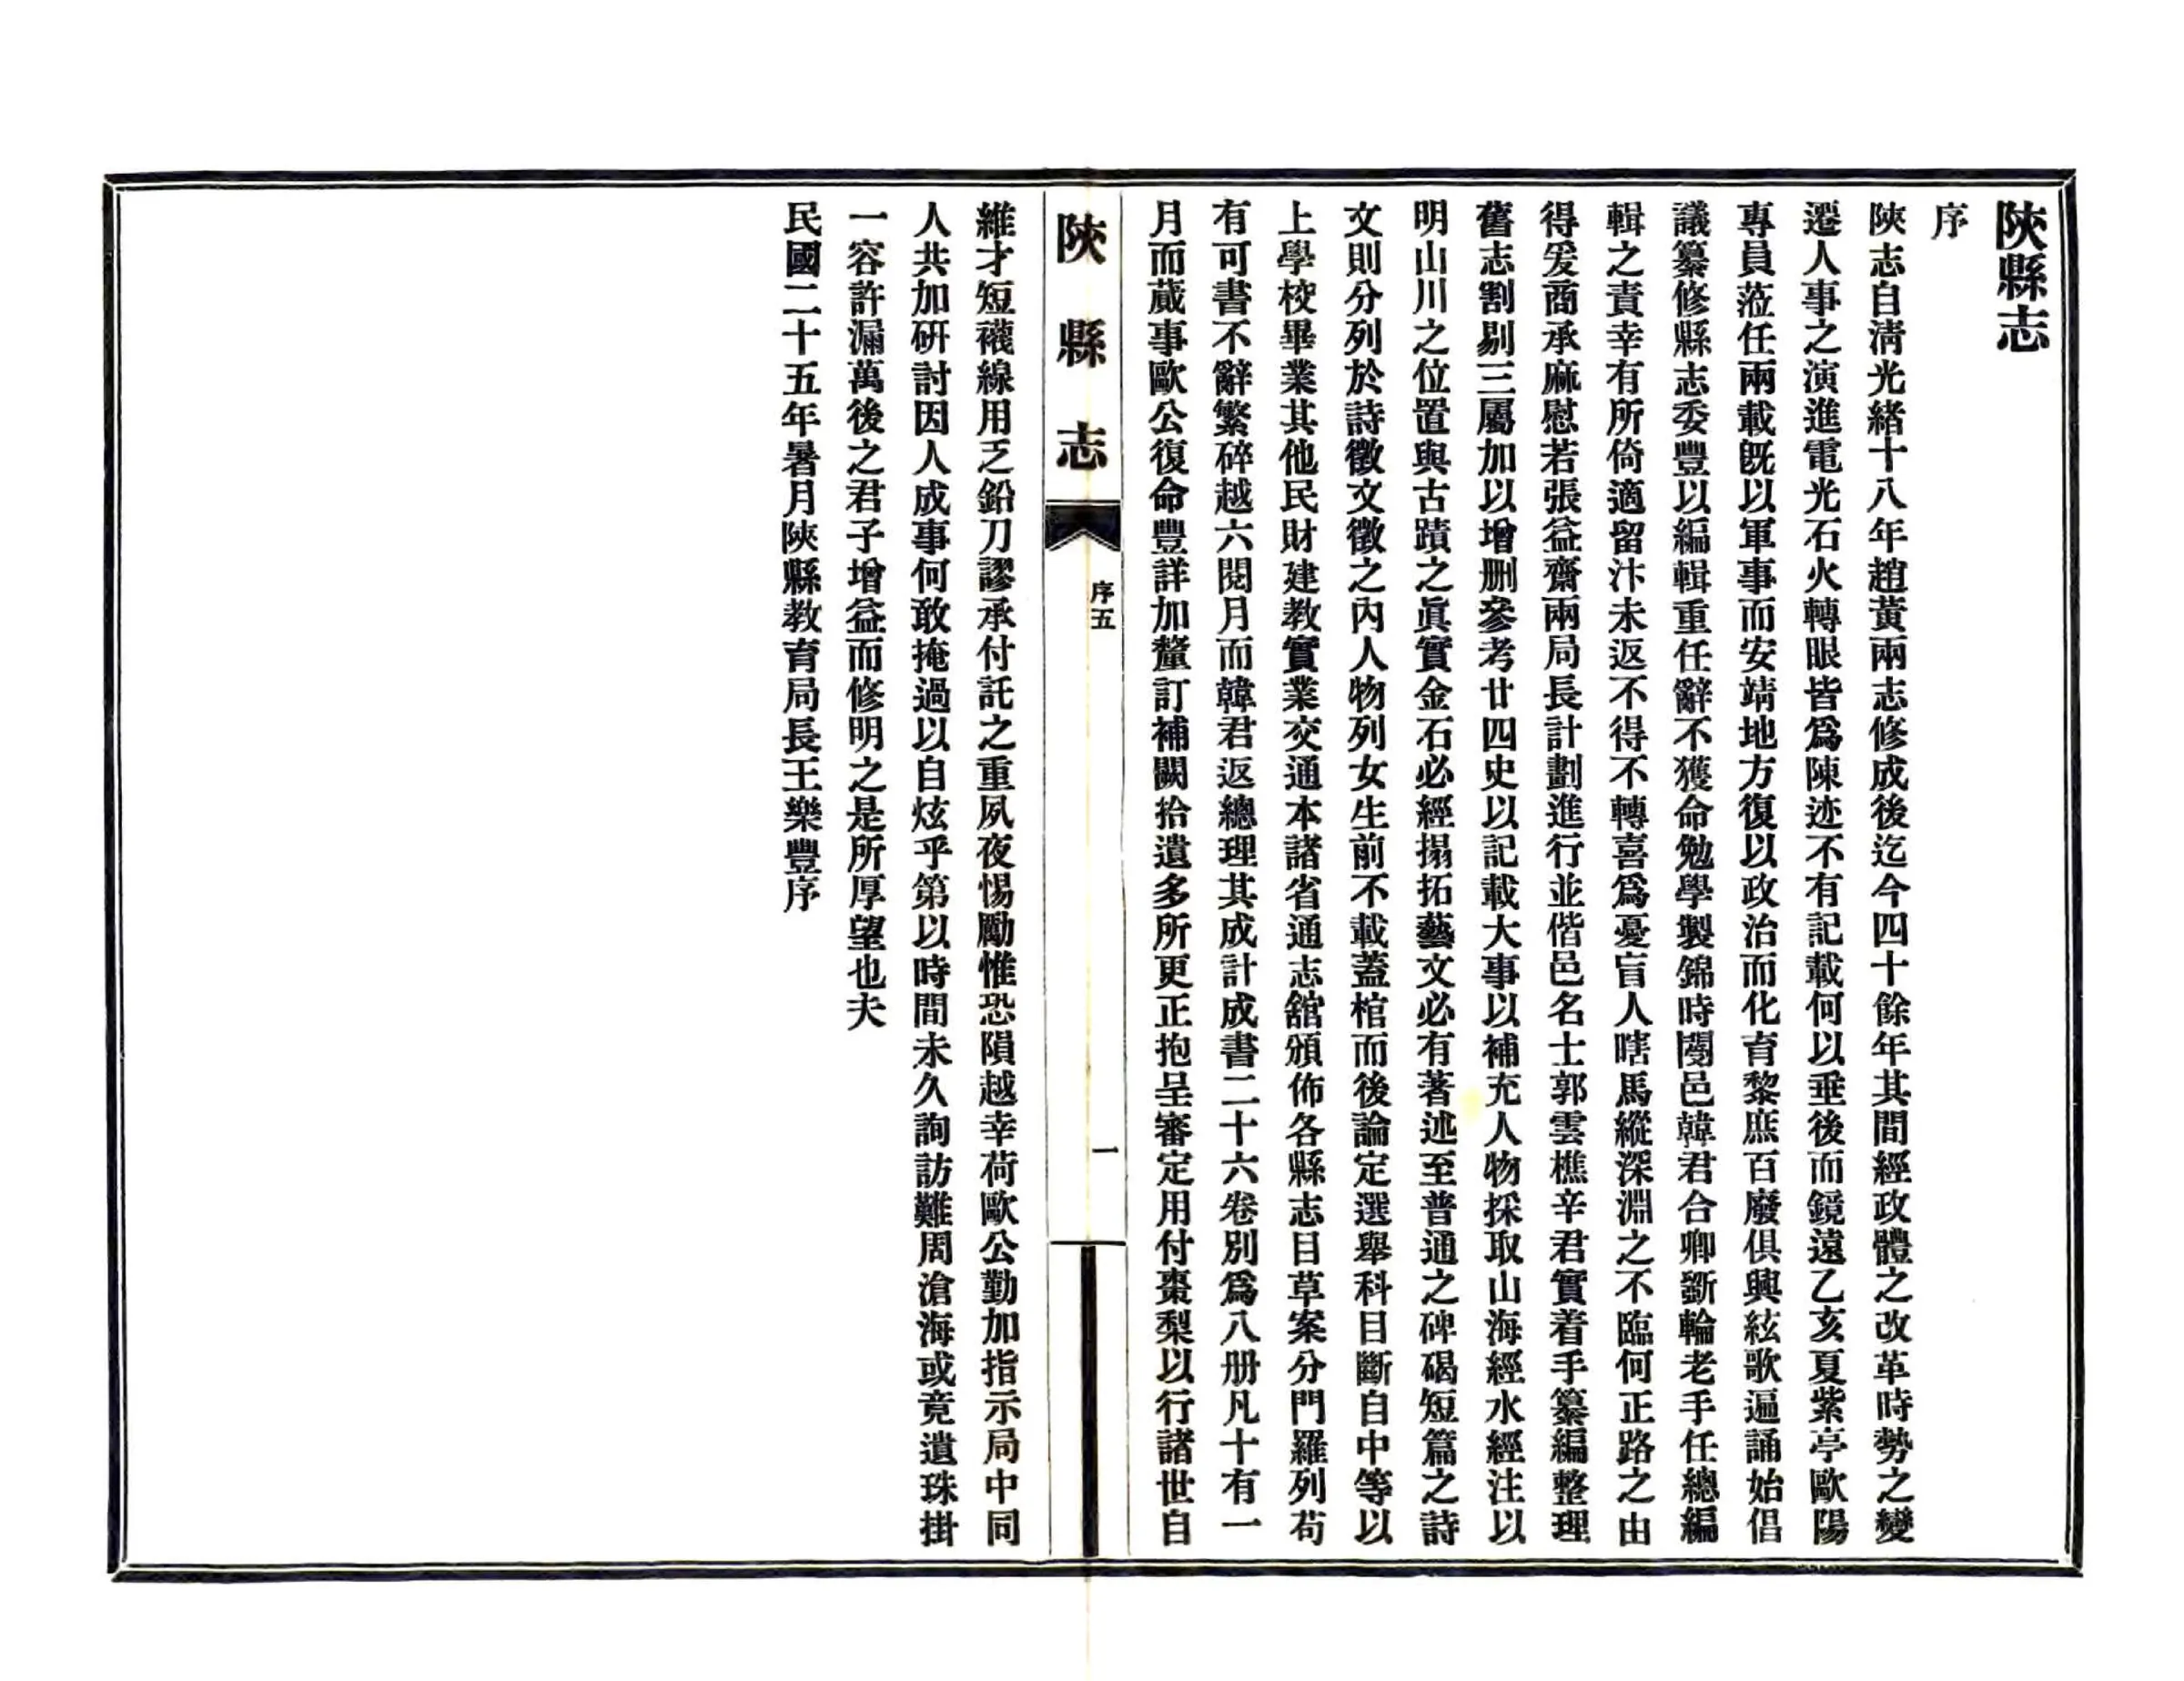 陝縣志
序
陝志自淸光緖十八年趙黃兩志修成後迄今四十餘年其間經政體之改革時勢之變
遷人事之演進電光石火轉眼皆爲陳迹不有記載何以垂後而鏡遠乙亥夏紫亭歐陽
專員蒞任兩載旣以軍事而安靖地方復以政治而化育黎庶百廢俱興絃歌遍誦始倡
議纂修縣志委豐以編輯重任辭不獲命勉學製錦時閿邑韓君合卿斲輪老手任總編
輯之責幸有所倚適留汴未返不得不轉喜爲憂盲人瞎馬縱深淵之不臨何正路之由
得爰商承麻慰若張益齋兩局長計劃進行並偕邑名士郭雲樵辛君實着手纂編整理
舊志割剔三屬加以增删參考廿四史以記載大事以補充人物採取山海經水經注以
明山川之位置與古蹟之眞實金石必經搨拓藝文必有著述至普通之碑碣短篇之詩
文則分列於詩徵文徵之內人物列女生前不載蓋棺而後論定選舉科目斷自中等以
上學校畢業其他民財建教實業交通本諸省通志舘頒佈各縣志目草案分門羅列苟
有可書不辭繁碎越六閱月而韓君返總理其成計成書二十六卷別爲八册凡十有一
月而蕆事歐公復命豐詳加釐訂補闕拾遺多所更正抱呈審定用付棗梨以行諸世自
陝縣志
序五
一
維才短襪線用乏鉛刀謬承付託之重夙夜惕勵惟恐隕越幸荷歐公勤加指示局中同
人共加研討因人成事何敢掩過以自炫乎第以時間未久詢訪難周滄海或竟遺珠掛
一容許漏萬後之君子增益而修明之是所厚望也夫
民國二十五年暑月陝縣教育局長王樂豐序